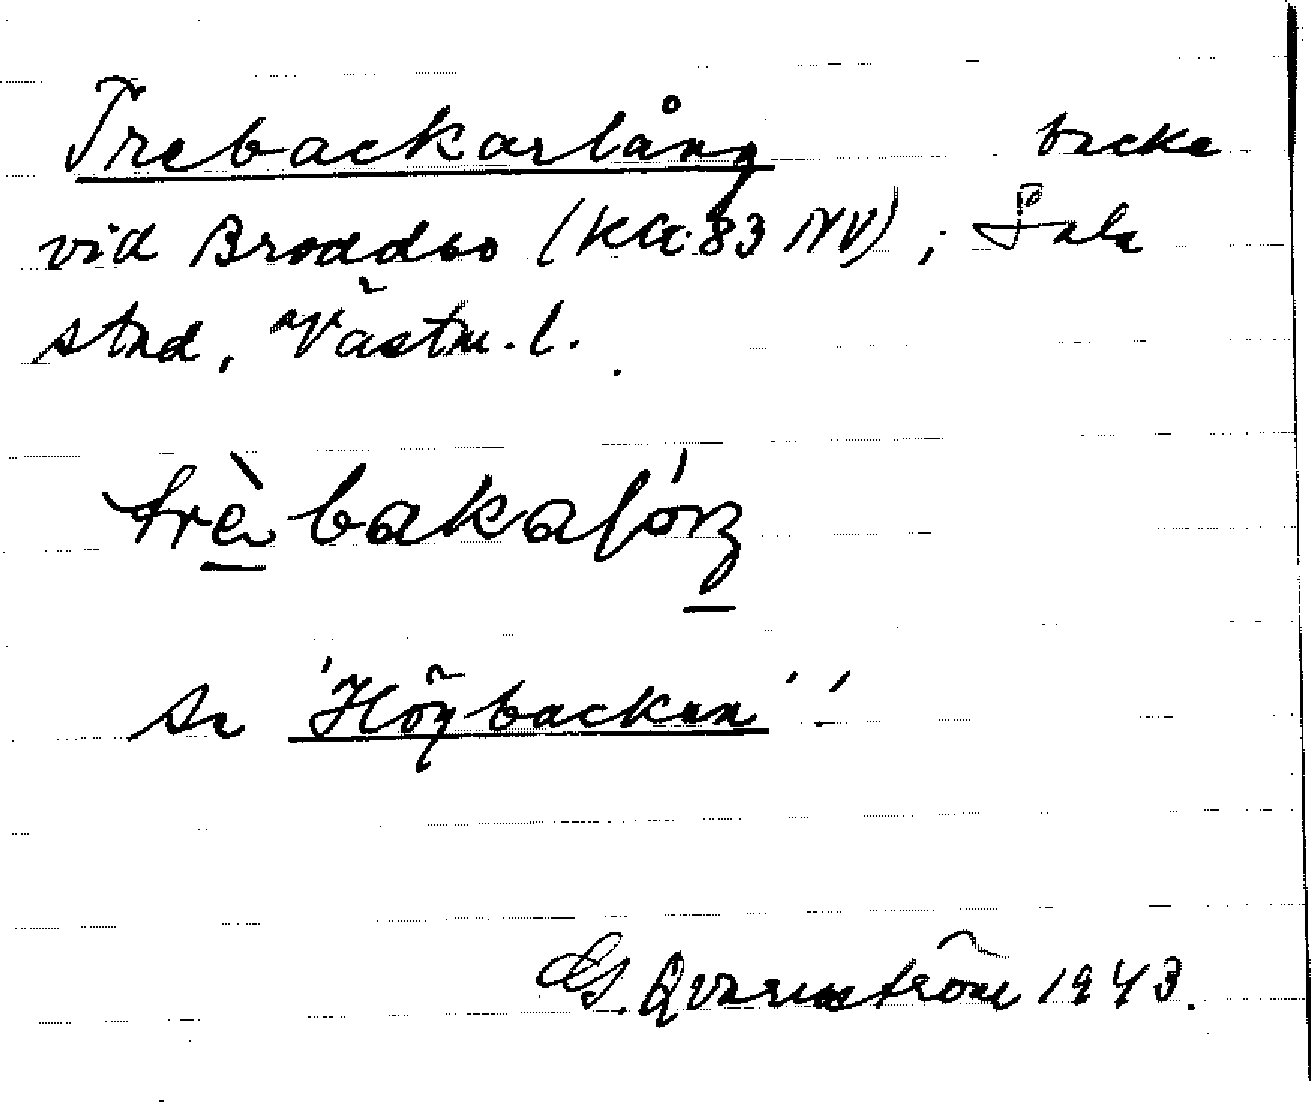 Trebackarlång backe
vid Broddbo (Ka 83 NV), Sala
stad, Västm. l.
trè bakalóŋ
Se 'Högbacken'!
G. Qvarnström 1943.